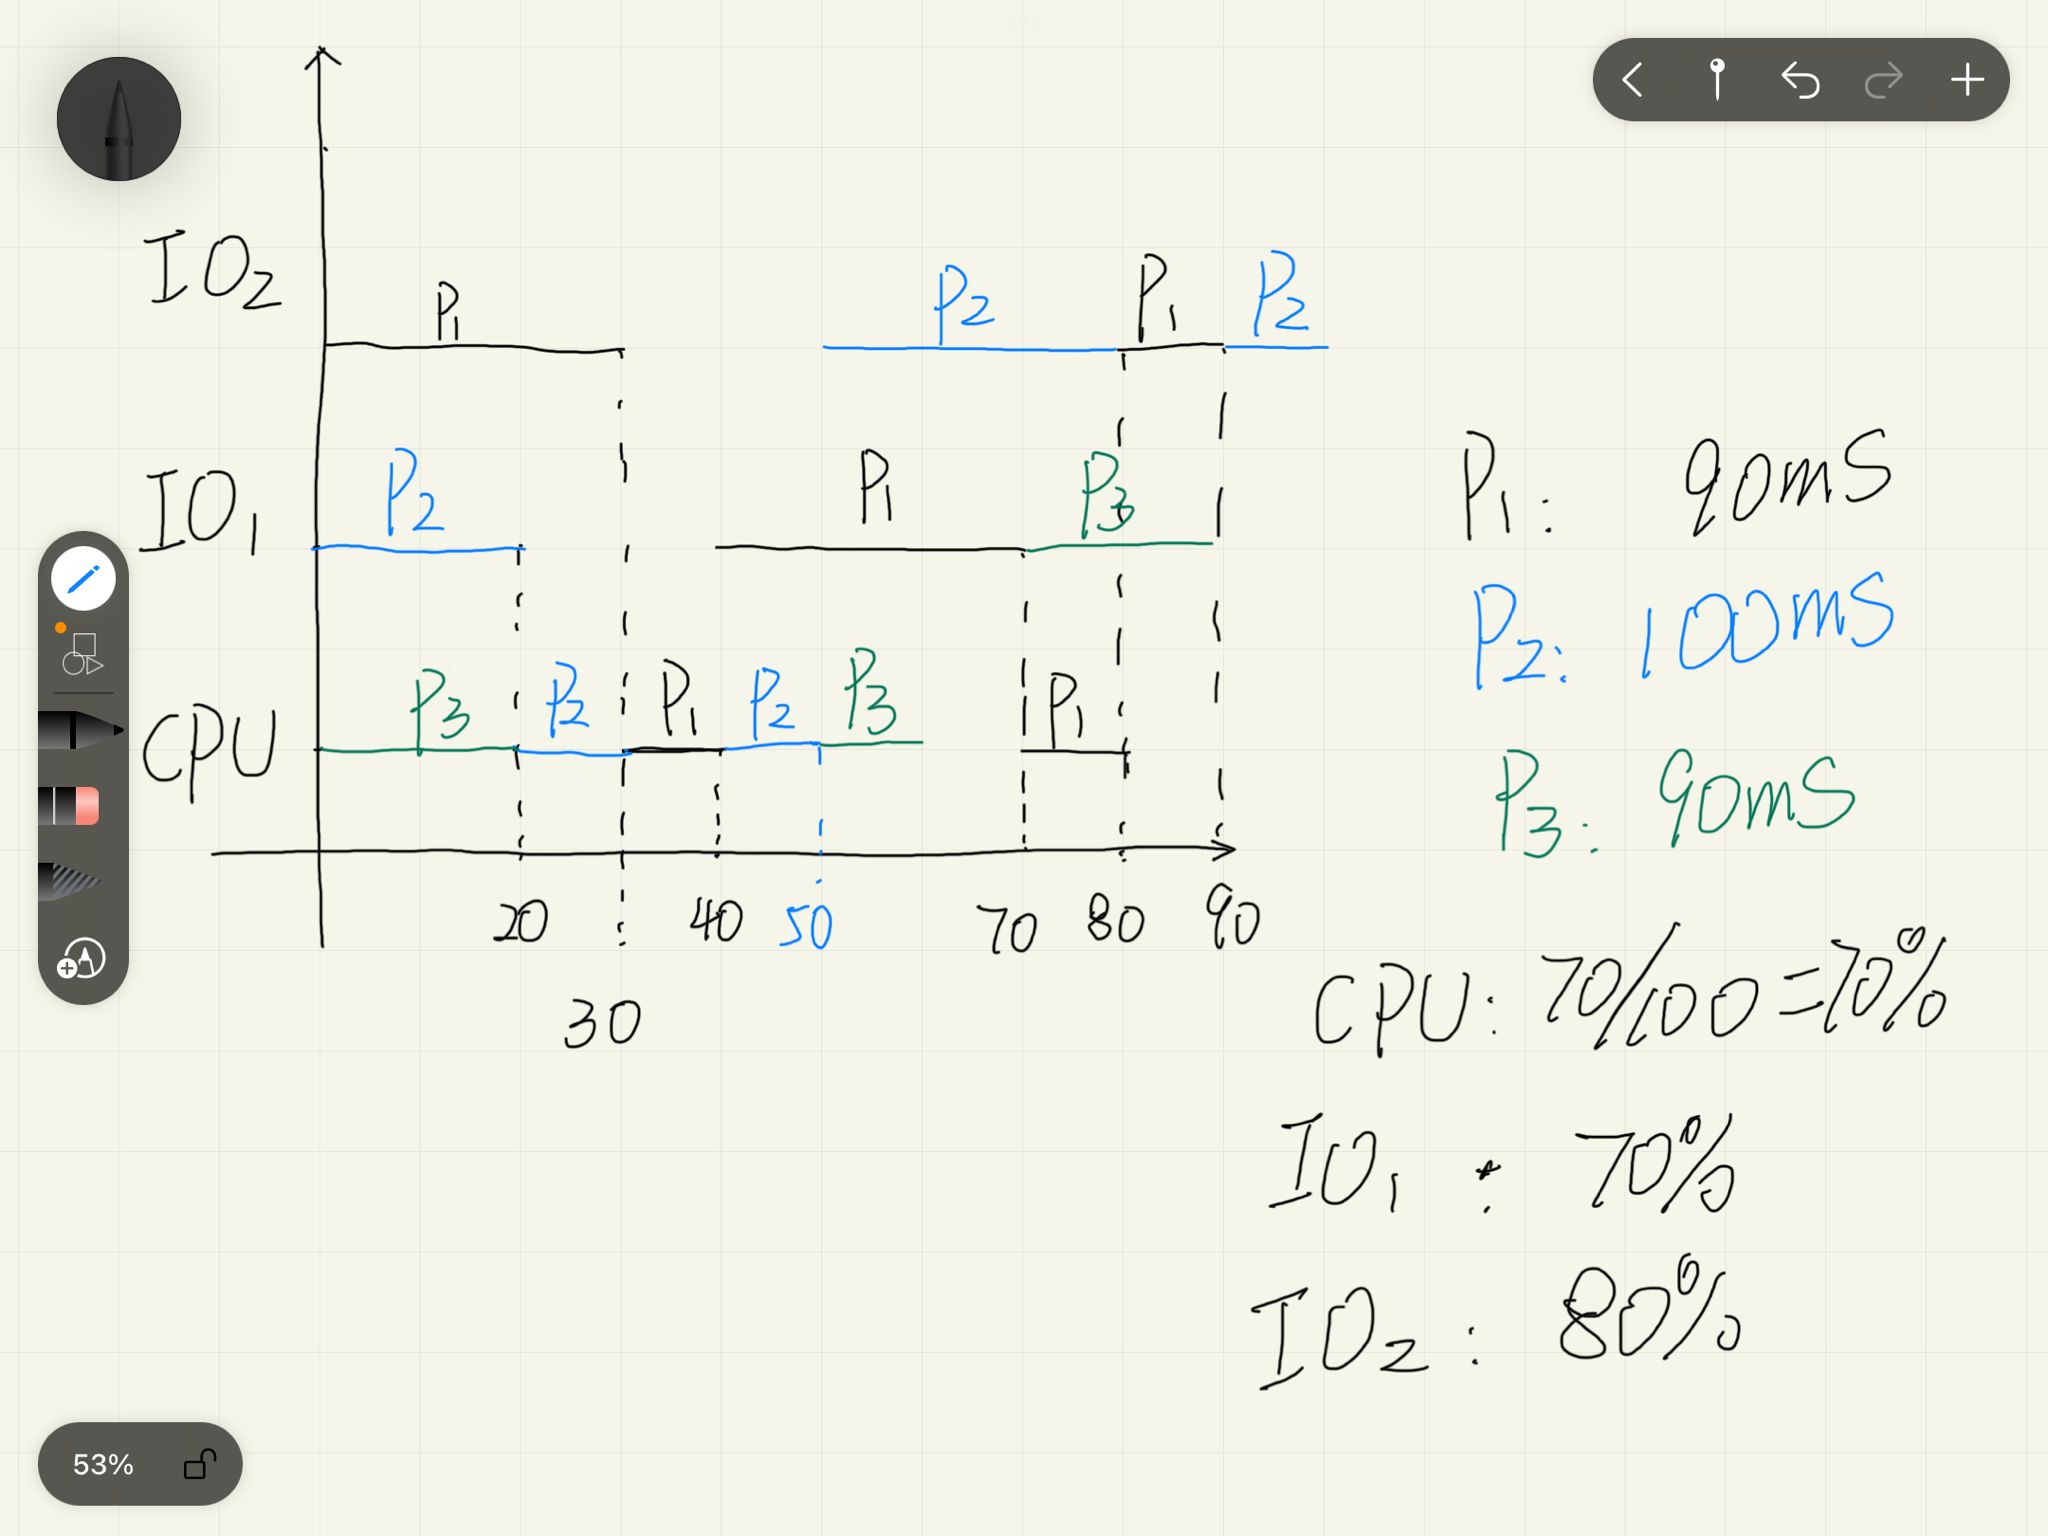 IO2
P1
P2
P1
P2
IO1
P2
P1
P3
CPU
P3
P2
P1
P2
P3
P1
20
30
40
50
70
80
90
P1: 90mS
P2: 100mS
P3: 90mS
CPU: 70/100=70%
IO1: 70%
IO2: 80%
53%